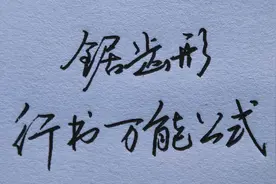 锯齿形
行书万能公式